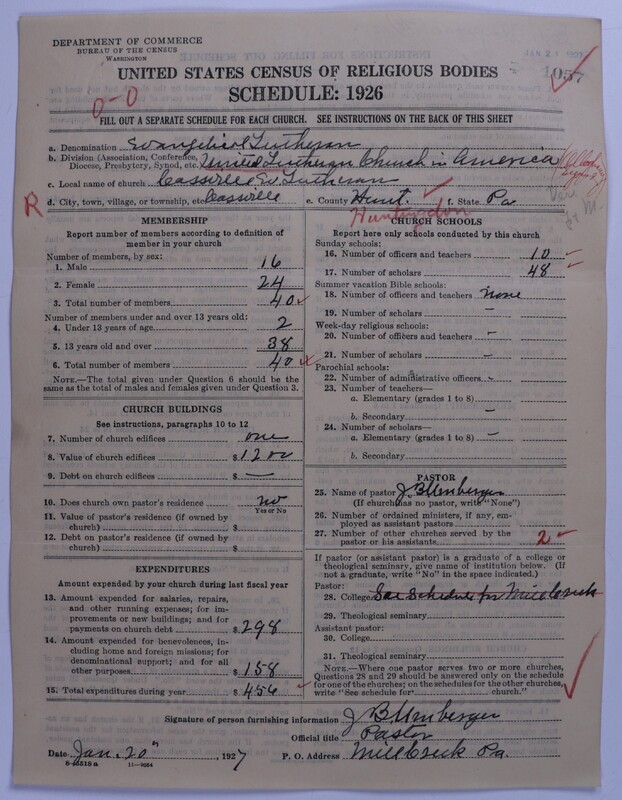 DEPARTMENT OF COMMERCE
BUREAU OF THE CENSUS
WASHINGTON
JAN 2
1057
UNITED STATES CENSUS OF RELIGIOUS BODIES
SCHEDULE: 1926
0-0
FILL OUT A SEPARATE SCHEDULE FOR EACH CHURCH. SEE INSTRUCTIONS ON THE BACK OF THIS SHEET
a. Denomination Evangelical Lutheran
b. Division (Association, Conference, Diocese, Presbytery, Synod, etc. United Lutheran Church in America
c. Local name of church Cassville Ev. Lutheran
R
d. City, town, village, or township, etc. Cassville e. County Hunt. f. State Pa
Huntingdon
MEMBERSHIP
Report number of members according to definition of
member in your church
Number of members, by sex:
1. Male 16
2. Female 24
3. Total number of members 40
Number of members under and over 13 years old:
4. Under 13 years of age 2
5. 13 years old and over 38
6. Total number of members 40
NOTE.—The total given under Question 6 should be the
same as the total of males and females given under Question 3.
CHURCH BUILDINGS
See instructions, paragraphs 10 to 12
7. Number of church edifices one
8. Value of church edifices $ 1200
9. Debt on church edifices $ —
10. Does church own pastor's residence no
Yes or No
11. Value of pastor's residence (if owned by
church) $
12. Debt on pastor's residence (if owned by
church) $
EXPENDITURES
Amount expended by your church during last fiscal year
13. Amount expended for salaries, repairs,
and other running expenses; for im-
provements or new buildings; and for
payments on church debt $ 298
14. Amount expended for benevolences, in-
cluding home and foreign missions; for
denominational support; and for all
other purposes $ 158
15. Total expenditures during year $ 456
CHURCH SCHOOLS
Report here only schools conducted by this church
Sunday schools:
16. Number of officers and teachers 10
17. Number of scholars 48
Summer vacation Bible schools:
18. Number of officers and teachers none
19. Number of scholars —
Week-day religious schools:
20. Number of officers and teachers —
21. Number of scholars —
Parochial schools:
22. Number of administrative officers —
23. Number of teachers—
a. Elementary (grades 1 to 8)
b. Secondary —
24. Number of scholars—
a. Elementary (grades 1 to 8) —
b. Secondary
PASTOR
25. Name of pastor J. B. Umberger
(If church has no pastor, write "None")
26. Number of ordained ministers, if any, em-
ployed as assistant pastors
27. Number of other churches served by the
pastor or his assistants 2
If pastor (or assistant pastor) is a graduate of a college or
theological seminary, give name of institution below. (If
not a graduate, write "No" in the space indicated.)
Pastor:
28. College See Schedule for Mill Creek
29. Theological seminary
Assistant pastor:
30. College
31. Theological seminary
NOTE.—Where one pastor serves two or more churches,
Questions 28 and 29 should be answered only on the schedule
for one of the churches; on the schedules for the other churches,
write "See schedule for church."
Signature of person furnishing information J B Umberger
Official title Pastor
Date Jan. 20th, 1927 P. O. Address Mill Creek Pa.
11—9084